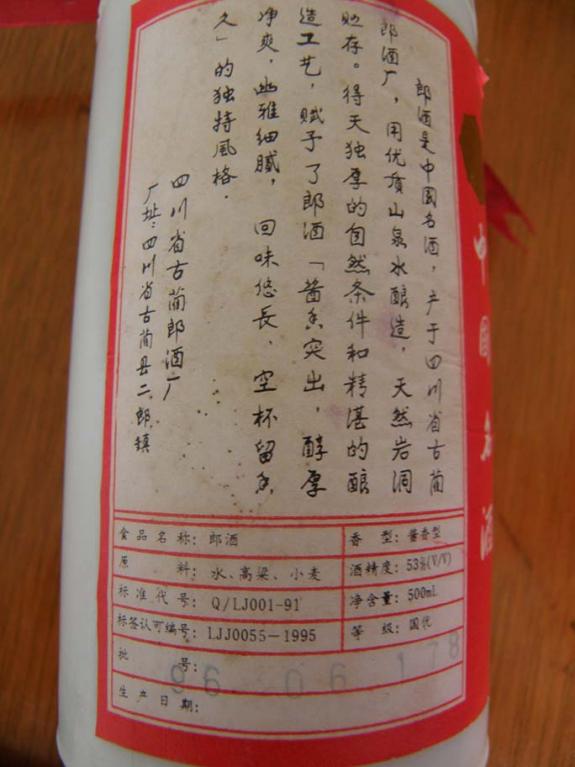 郎酒是中国名酒，产于四川省古蔺
郎酒厂，用优质山泉水酿造，天然岩洞
贮存。得天独厚的自然条件和精湛的酿
造工艺，赋予了郎酒「酱香突出，醇厚
净爽，幽雅细腻，回味悠长，空杯留香
久」的独特风格.
四川省古蔺郎酒厂
厂址:四川省古蔺县二郎镇
中國名酒
食品名称: 郎酒
香 型: 酱香型
原 料: 水、高梁、小麦
酒精度: 53%(V/V)
标准代号: Q/LJ001-91
净含量: 500mL
标签认可编号: LJJ0055-1995
等 级: 国优
批 号:
生产日期:
96 06 178